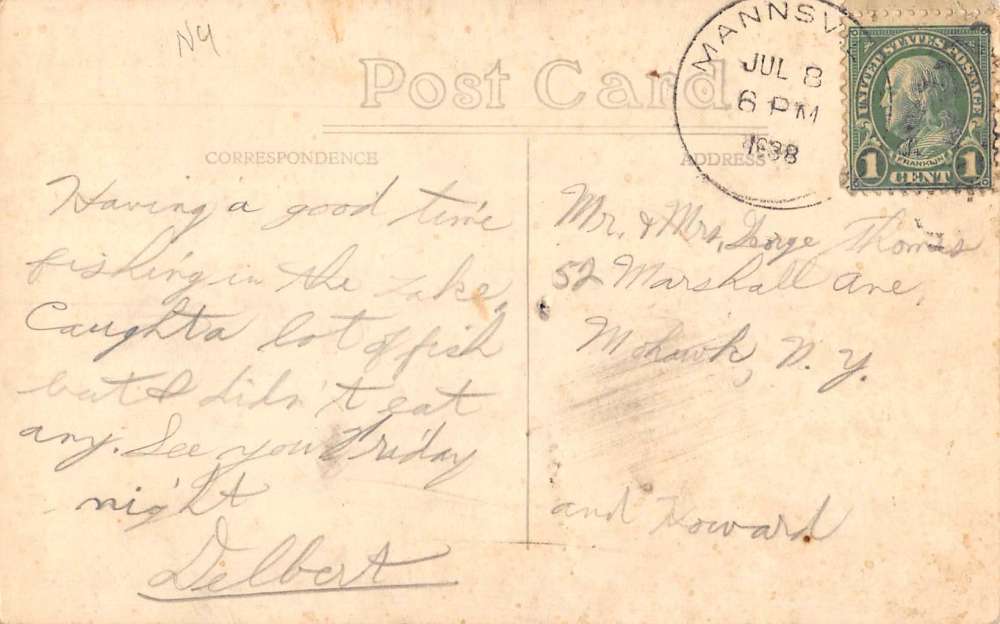 NY
Post Card
MANNSV
JUL 8
6 PM
1938
UNITED STATES POSTAGE
FRANKLIN
1 CENT 1
CORRESPONDENCE
ADDRESS
Having a good time
fishing in the Lake,
Caught a lot of fish
but I didn't eat
any. See you Friday
night
Delbert
Mr. & Mrs. George Thomas
52 Marshall Ave,
Mohawk, N. Y.
and Howard